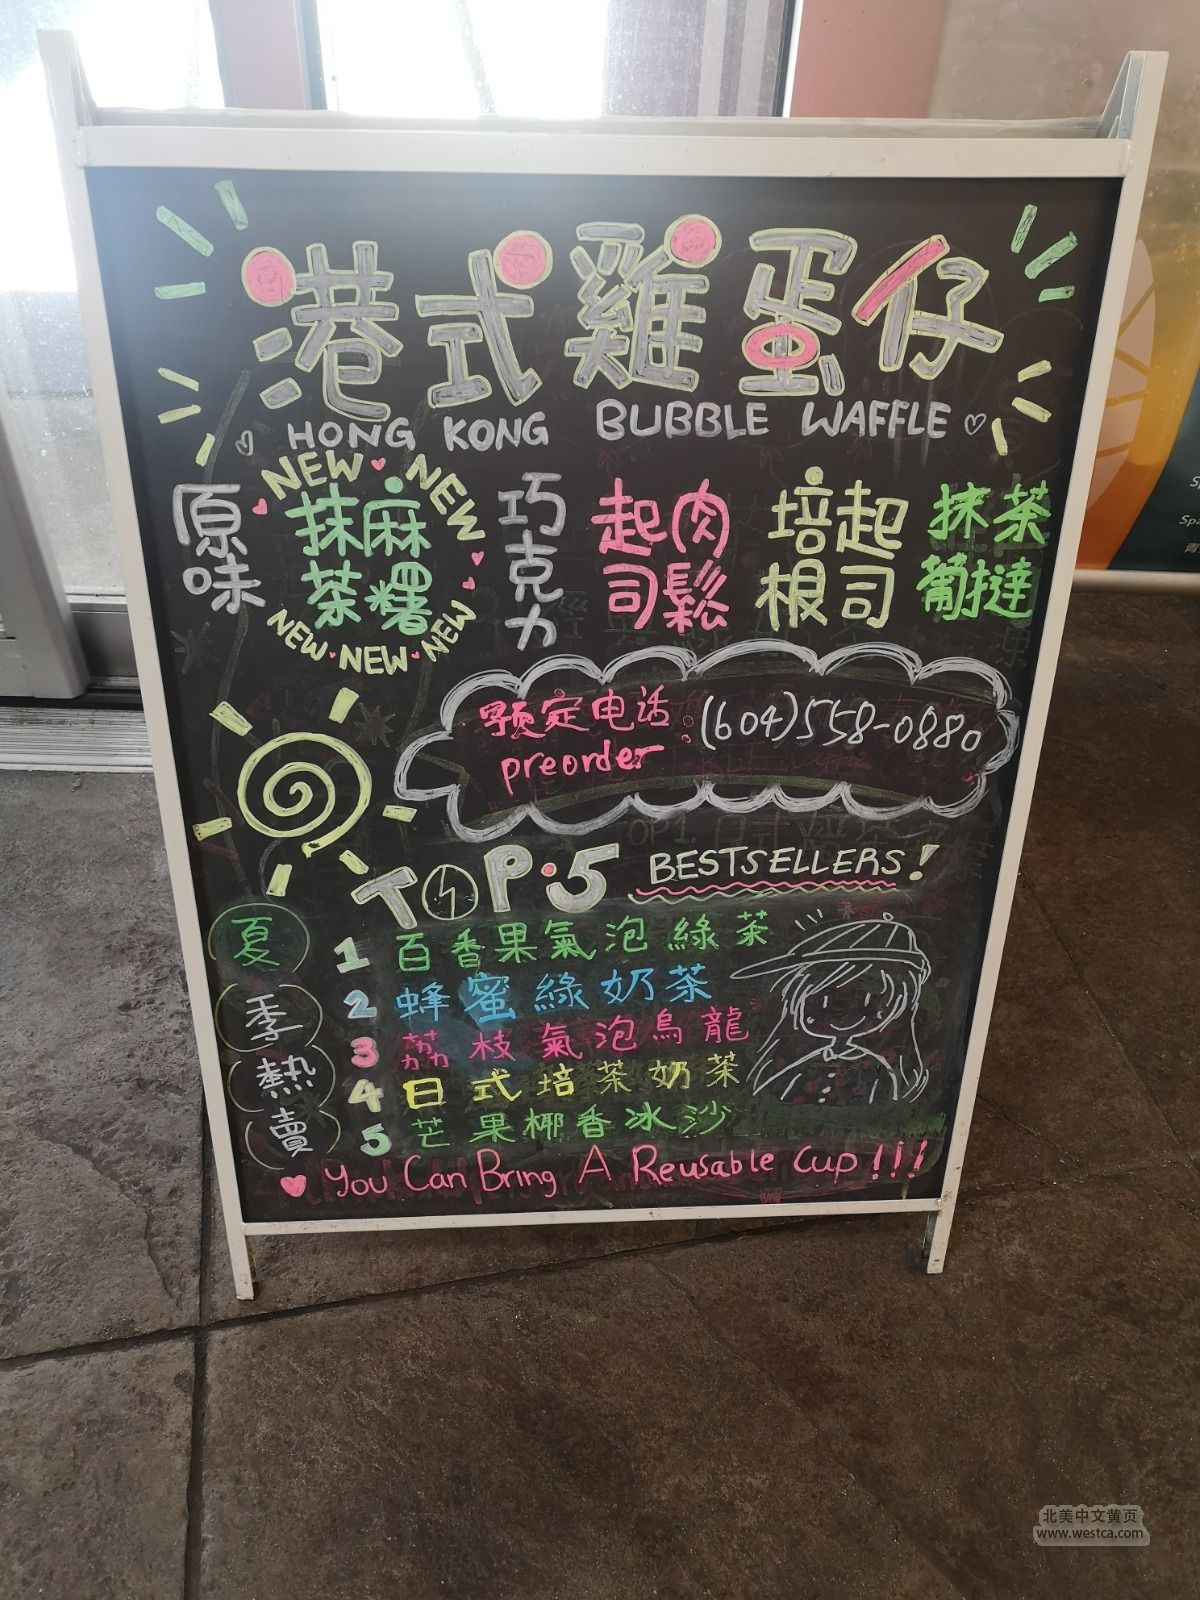 港式雞蛋仔
HONG KONG BUBBLE WAFFLE
原味
NEW NEW
抹茶麻糬
NEW NEW NEW
巧克力
起司肉鬆
培根起司
抹茶葡撻
预定电话:(604)558-0880
preorder
TOP.5 BESTSELLERS!
夏季熱賣
1 百香果氣泡綠茶
2 蜂蜜綠奶茶
3 荔枝氣泡烏龍
4 日式培茶奶茶
5 芒果椰香冰沙
You Can Bring A Reusable cup!!!
北美中文黄页
www.westca.com